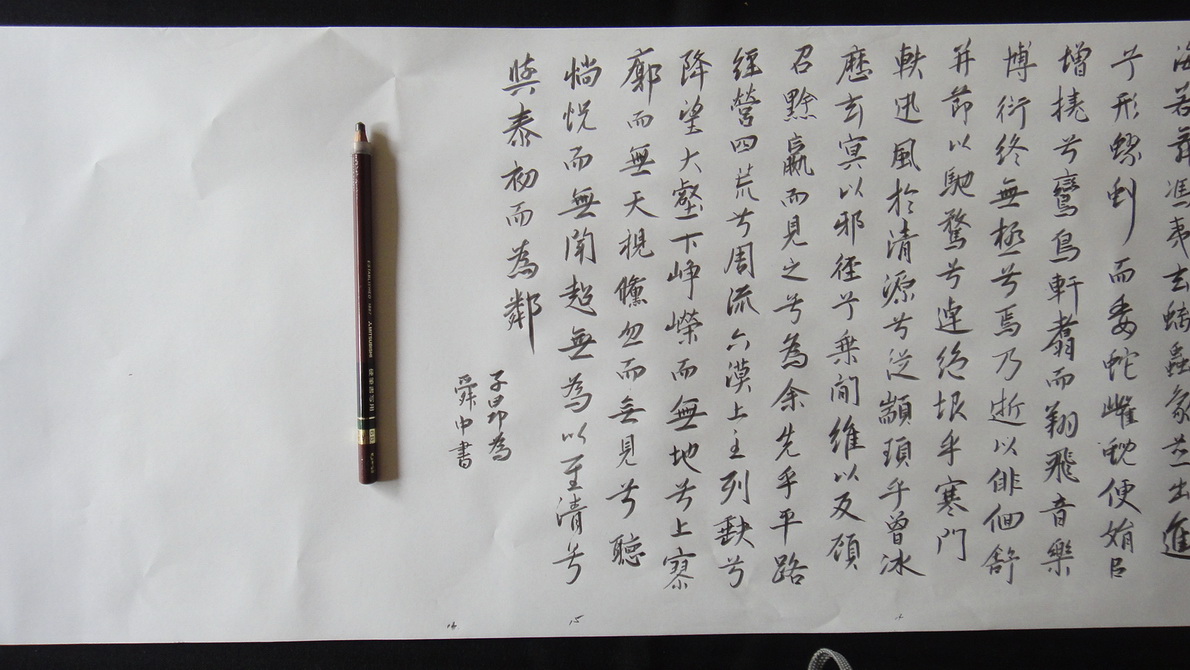 海若舞馮夷玄螭蟲象並出進
兮形蟉虯而委蛇雌蜺便娟㠯
增撓兮鸞鳥軒翥而翔飛音樂
博衍終無極兮焉乃逝以俳佪舒
并節以馳騖兮逴絶垠乎寒門
軼迅風於清源兮從顓頊乎曾冰
歷玄冥以邪徑兮乘間維以反顧
召黔嬴而見之兮為余先乎平路
經營四荒兮周流六漠上至列缺兮
降望大壑下崢嶸而無地兮上寥
廓而無天視儵忽而無見兮聽
惝怳而無聞超無為以至清兮
與泰初而為鄰
子昂為
舜中書
MITSUBISHI